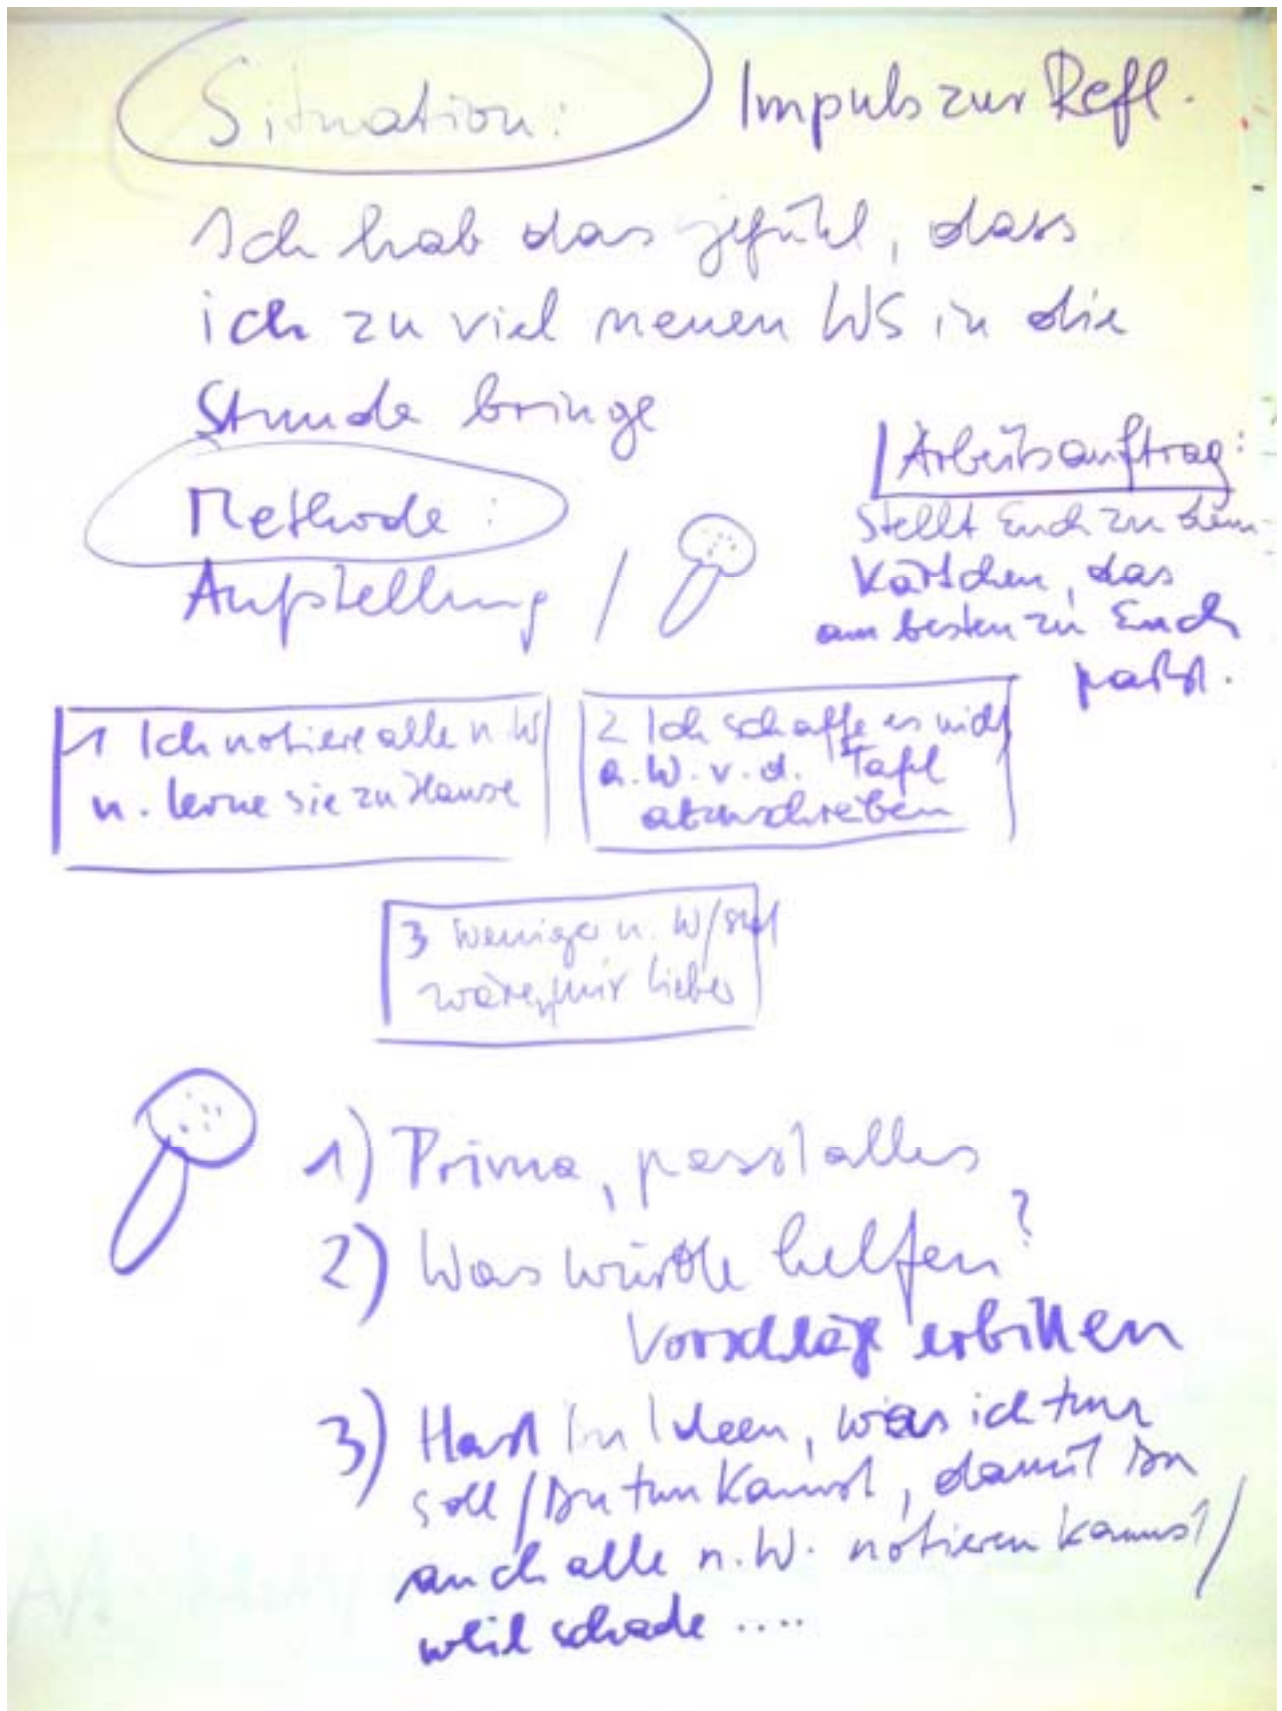 Situation: Impuls zur Refl.
Ich hab das gefühl, dass
ich zu viel neuen WS in die
Stunde bringe
Methode:
Aufstellung /
Arbeitsauftrag:
Stellt Euch zu dem
Kärtchen, das
am besten zu Euch
paßt.
1 Ich notiere alle n. W
u. lerne sie zu Hause
2 Ich schaffe es nicht
a. W. v. d. Tafel
abzuschreiben
3 Weniger n. W/Std
wären mir lieber
1) Prima, passt alles
2) Was würde helfen?
Vorschläge erbitten
3) Hast Du Ideen, was ich tun
soll / Du tun kannst, damit Du
auch alle n. W. notieren kannst /
weil schade ....